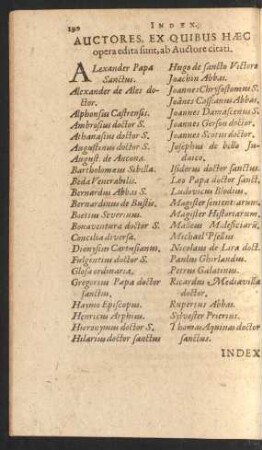 190 INDEX.
AUCTORES, EX QUIBUS HÆC
opera edita sunt, ab Auctore citati.
ALexander Papa
Sanctus.
Alexander de Ales do-
ctor.
Alphonsus Castrensis.
Ambrosius doctor S.
Athanasius doctor S.
Augustinus doctor S.
August. de Ancona.
Bartholomæus Sibilla.
Beda Venerabilis.
Bernardus Abbas S.
Bernardinus de Bustis.
Boetius Severinus.
Bonaventura doctor S.
Concilia diversa.
Dionysius Cartusianus.
Fulgentius doctor S.
Glosa ordinaria.
Gregorius Papa doctor
sanctus.
Haymo Episcopus.
Henricus Arphius.
Hieronymus doctor S.
Hilarius doctor sanctus
Hugo de sancto Victore
Joachin Abbas.
Joannes Chrysostomus S.
Joānes Cassianus Abbas.
Joannes Damascenus S.
Joannes Gerson doctor.
Joannes Scotus doctor.
Josephus de bello Ju-
daico.
Isidorus doctor sanctus.
Leo Papa doctor sanct.
Ludovicus Blosius.
Magister sententiarum.
Magister Historiarum.
Malleus Maleficiarū.
Michael Psellus
Nicolaus de Lira doct.
Paulus Ghirlandus.
Petrus Galatinus.
Ricardus à Mediavilla
doctor.
Rupertus Abbas.
Sylvester Prierius.
Thomas Aquinas doctor
sanctus.
INDEX